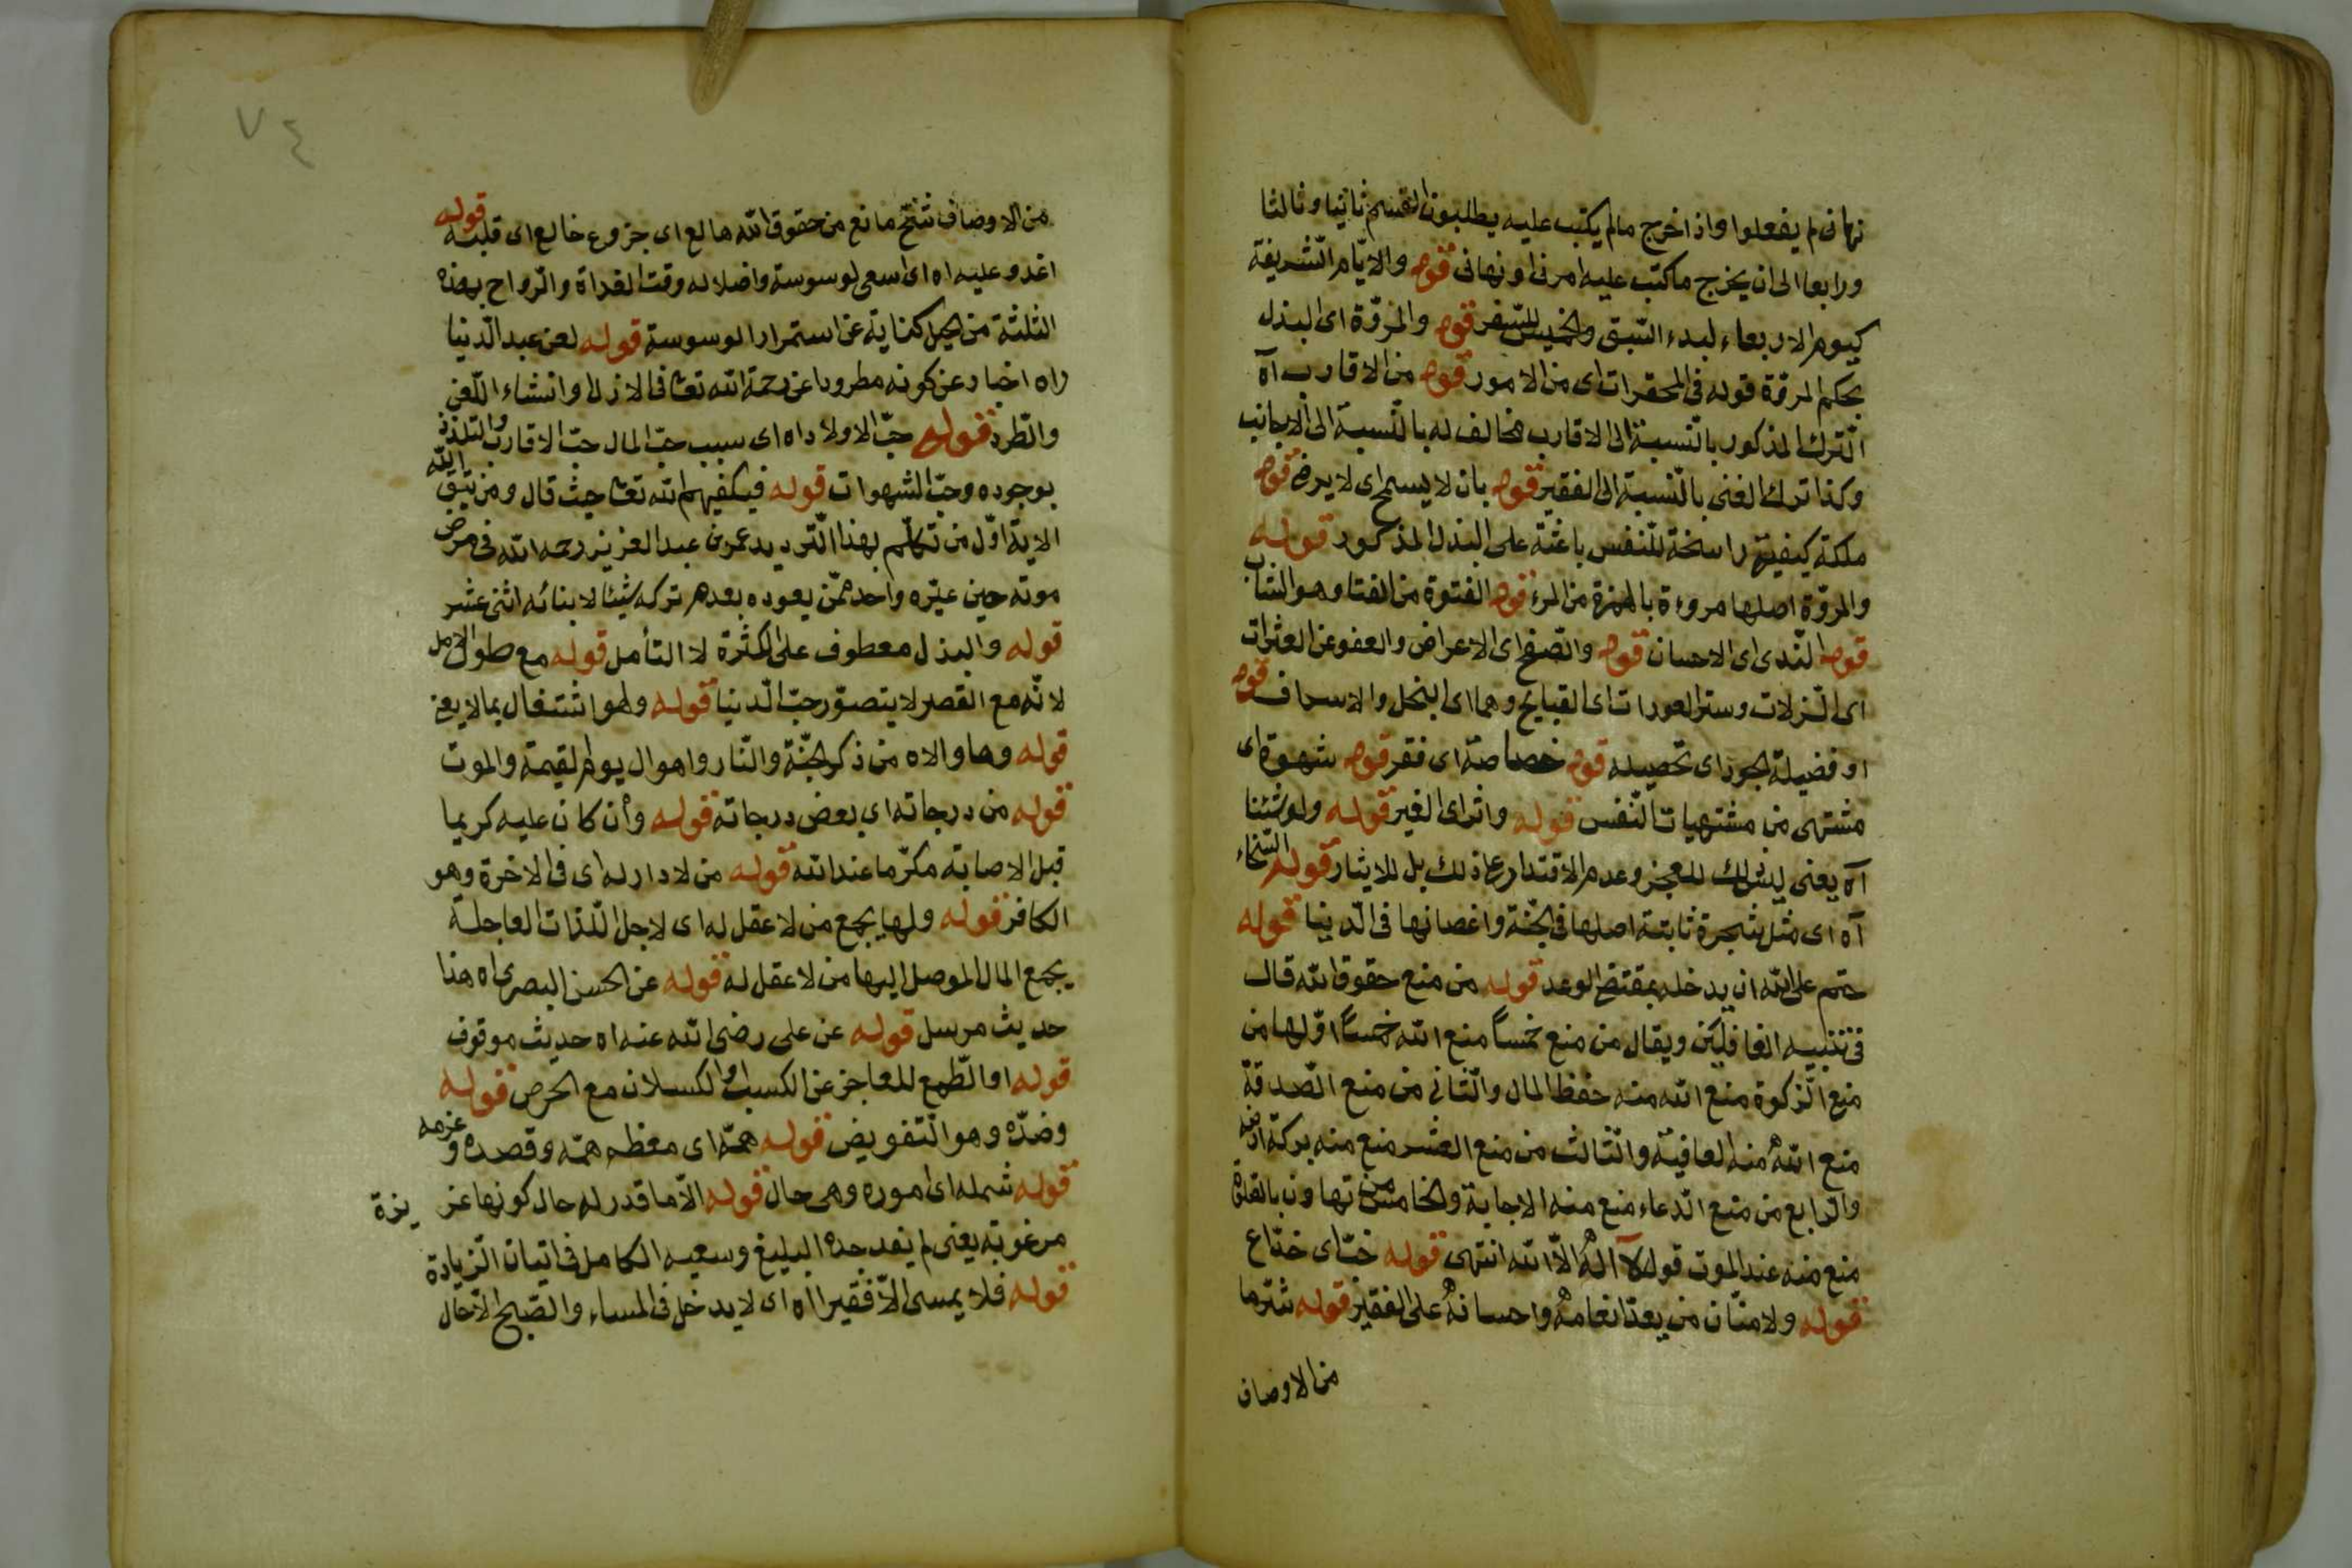 نهانى لم يفعلوا واذا خرج مالم يكتب عليه يطلبون القسم ثانيا وثالثا
ورابعا الى ان يخرج ماكتب عليه امرنى او نهانى قوله والايّام الشّريفة
كيوم الاربعاء لبدء السّبق والخميس للسّفر قوله والمروّة اى البذل
بحكم المروّة قوله فى المحقرات اى من الامور قوله من الاقارب آه
التّرك المذكور بالنّسبة الى الاقارب مخالف له بالنّسبة الى الاجانب
وكذا ترك الغنى بالنّسبة الى الفقير قوله بان لا يسمح اى لا يرضى قوله
ملكة كيفيّة راسخة للنّفس باعثة على البذل المذكور قوله
والمروّة اصلها مروءة بالهمزة من المرء قوله الفتوة من الفتا وهو الشاب
قوله النّدى اى الاحسان قوله والصّفح اى الاعراض والعفو عن العثرات
اى الزّلات وستر العورات اى القبايح وهما اى البخل والاسراف قوله
او فضيلة الجود اى تحصيله قوله خصاصة اى فقر قوله شهوة اى
مشتهى من مشتهيات النّفس قوله واثر اى الغير قوله ولو شئنا
آه يعنى ليس ذلك للعجز وعدم الاقتدار على ذلك بل للايثار قوله السّخاء
آه اى مثل شجرة ثابتة اصلها فى الجنّة واغصانها فى الدّنيا قوله
حتم على الله ان يدخله بمقتضى الوعد قوله من منع حقوق الله قال
فى تنبيه الغافلين ويقال من منع خمساً منع الله خمساً اوّلها من
منع الزّكوة منع الله منه حفظ المال والثّانى من منع الصّدقة
منع الله منه العافية والثّالث من منع العشر منع منه بركة ارضه
والرّابع من منع الدّعاء منع منه الاجابة والخامس من تهاون بالصلوة
منع منه عند الموت قول لآ اله الاّ الله انتهى قوله خبّ اى خدّاع
قوله ولا منّان من يعدّ انعامه واحسانه على الفقير قوله شرّ ما
من الاوصاف
٧٤
من الاوصاف شحّ مانع من حقوق الله هالع اى جزوع خالع اى قلبه قوله
اغدو عليه اه اى اسعى لوسوسة واضلاله وقت الغداة والرّواح بهذه
الثلثة من الحيل كناية عن استمرار الوسوسة قوله لعن عبد الدّنيا
اه اخبار عن كونه مطرودا عن رحمة الله تعا فى الازل او انشاء اللّعن
والطّرد قوله حبّ الاولاد اه اى سبب حبّ المال حبّ الاقارب والتلذذ
بوجوده وحبّ الشهوات قوله فيكفيهم الله تعا حيث قال ومن يتّق الله
الاية اوّل من تكلّم بهذا التّرديد عمر بن عبد العزيز رحمه الله فى مرض
موته حين عيّره واحد ممّن يعوده بعدم تركه شيئا لابنائه اثنى عشر
قوله والبذل معطوف على الكثرة لا التأمل قوله مع طول الامل
لانّه مع القصر لا يتصوّر حبّ الدّنيا قوله ولهو اشتغال بما لا يعنى
قوله وما والاه من ذكر الجنّة والنّار واهوال يوم القيمة والموت
قوله من درجاته اى بعض درجاته قوله وأن كان عليه كريما
قبل الاصابة مكرّما عند الله قوله من لا دار له اى فى الاخرة وهو
الكافر قوله ولها يجمع من لا عقل له اى لاجل اللّذات العاجلة
يجمع المال الموصل اليها من لا عقل له قوله عن الحسن البصرى اه هذا
حديث مرسل قوله عن على رضى الله عنه اه حديث موقوف
قوله او الطّمع للعاجز عن الكسب او الكسلان مع الحرص قوله
وضدّه وهو التّفويض قوله همّه اى معظم همّه وقصده وعزمه
قوله شمله اى اموره وهى حال قوله الاّ ما قدر له حال كونها عزيزة
مرغوبة يعنى لم يفد جدّه البليغ وسعيه الكامل فى اتيان الزّيادة
قوله فلا يمسى الاّ فقيرا اه اى لا يدخل فى المساء والصّبح الاّ حال